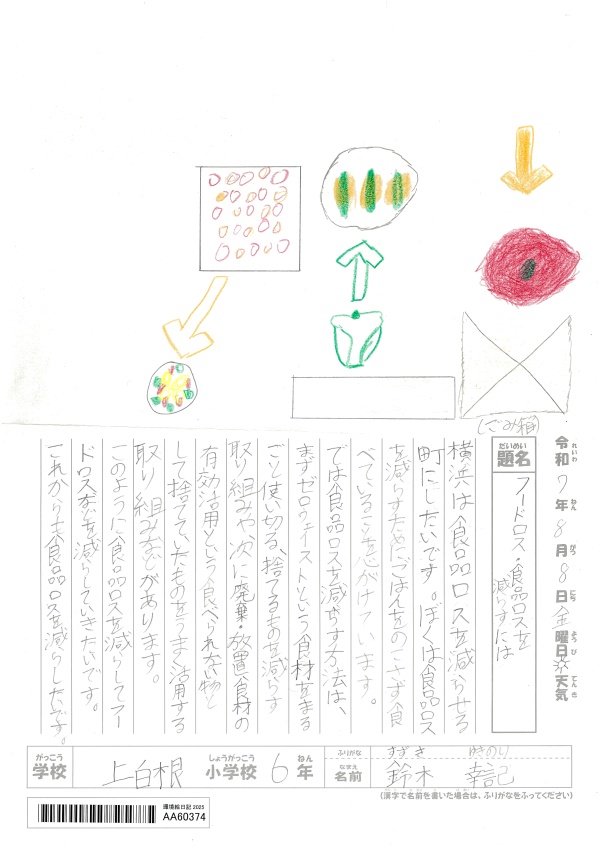 (ごみ箱)
令和7年8月8日金曜日 天気
れいわ ねん がつ にち ようび てんき
だいめい
題名
フードロス・食品ロスを
減らすには
横浜は食品ロスを減らせる
町にしたいです。ぼくは食品ロス
を減らすためにごはんをのこさず食
べていることを心がけています。
では食品ロスを減らす方法は、
まずゼロウェイストという食材をまる
ごと使い切る、捨てるものを減らす
取り組みや、次に廃棄・放置食材の
有効活用という食べられない物と
して捨てていたものをうまく活用する
取り組みなどがあります。
このように食品ロスを減らしてフー
ドロスなどを減らしていきたいです。
これからも食品ロスを減らしたいです。
がっこう
学校
上白根
しょうがっこう
小学校
6
ねん
年
ふりがな
すずき ゆきのり
なまえ
名前
鈴木 幸記
(漢字で名前を書いた場合は、ふりがなをふってください)
環境絵日記 2025
AA60374